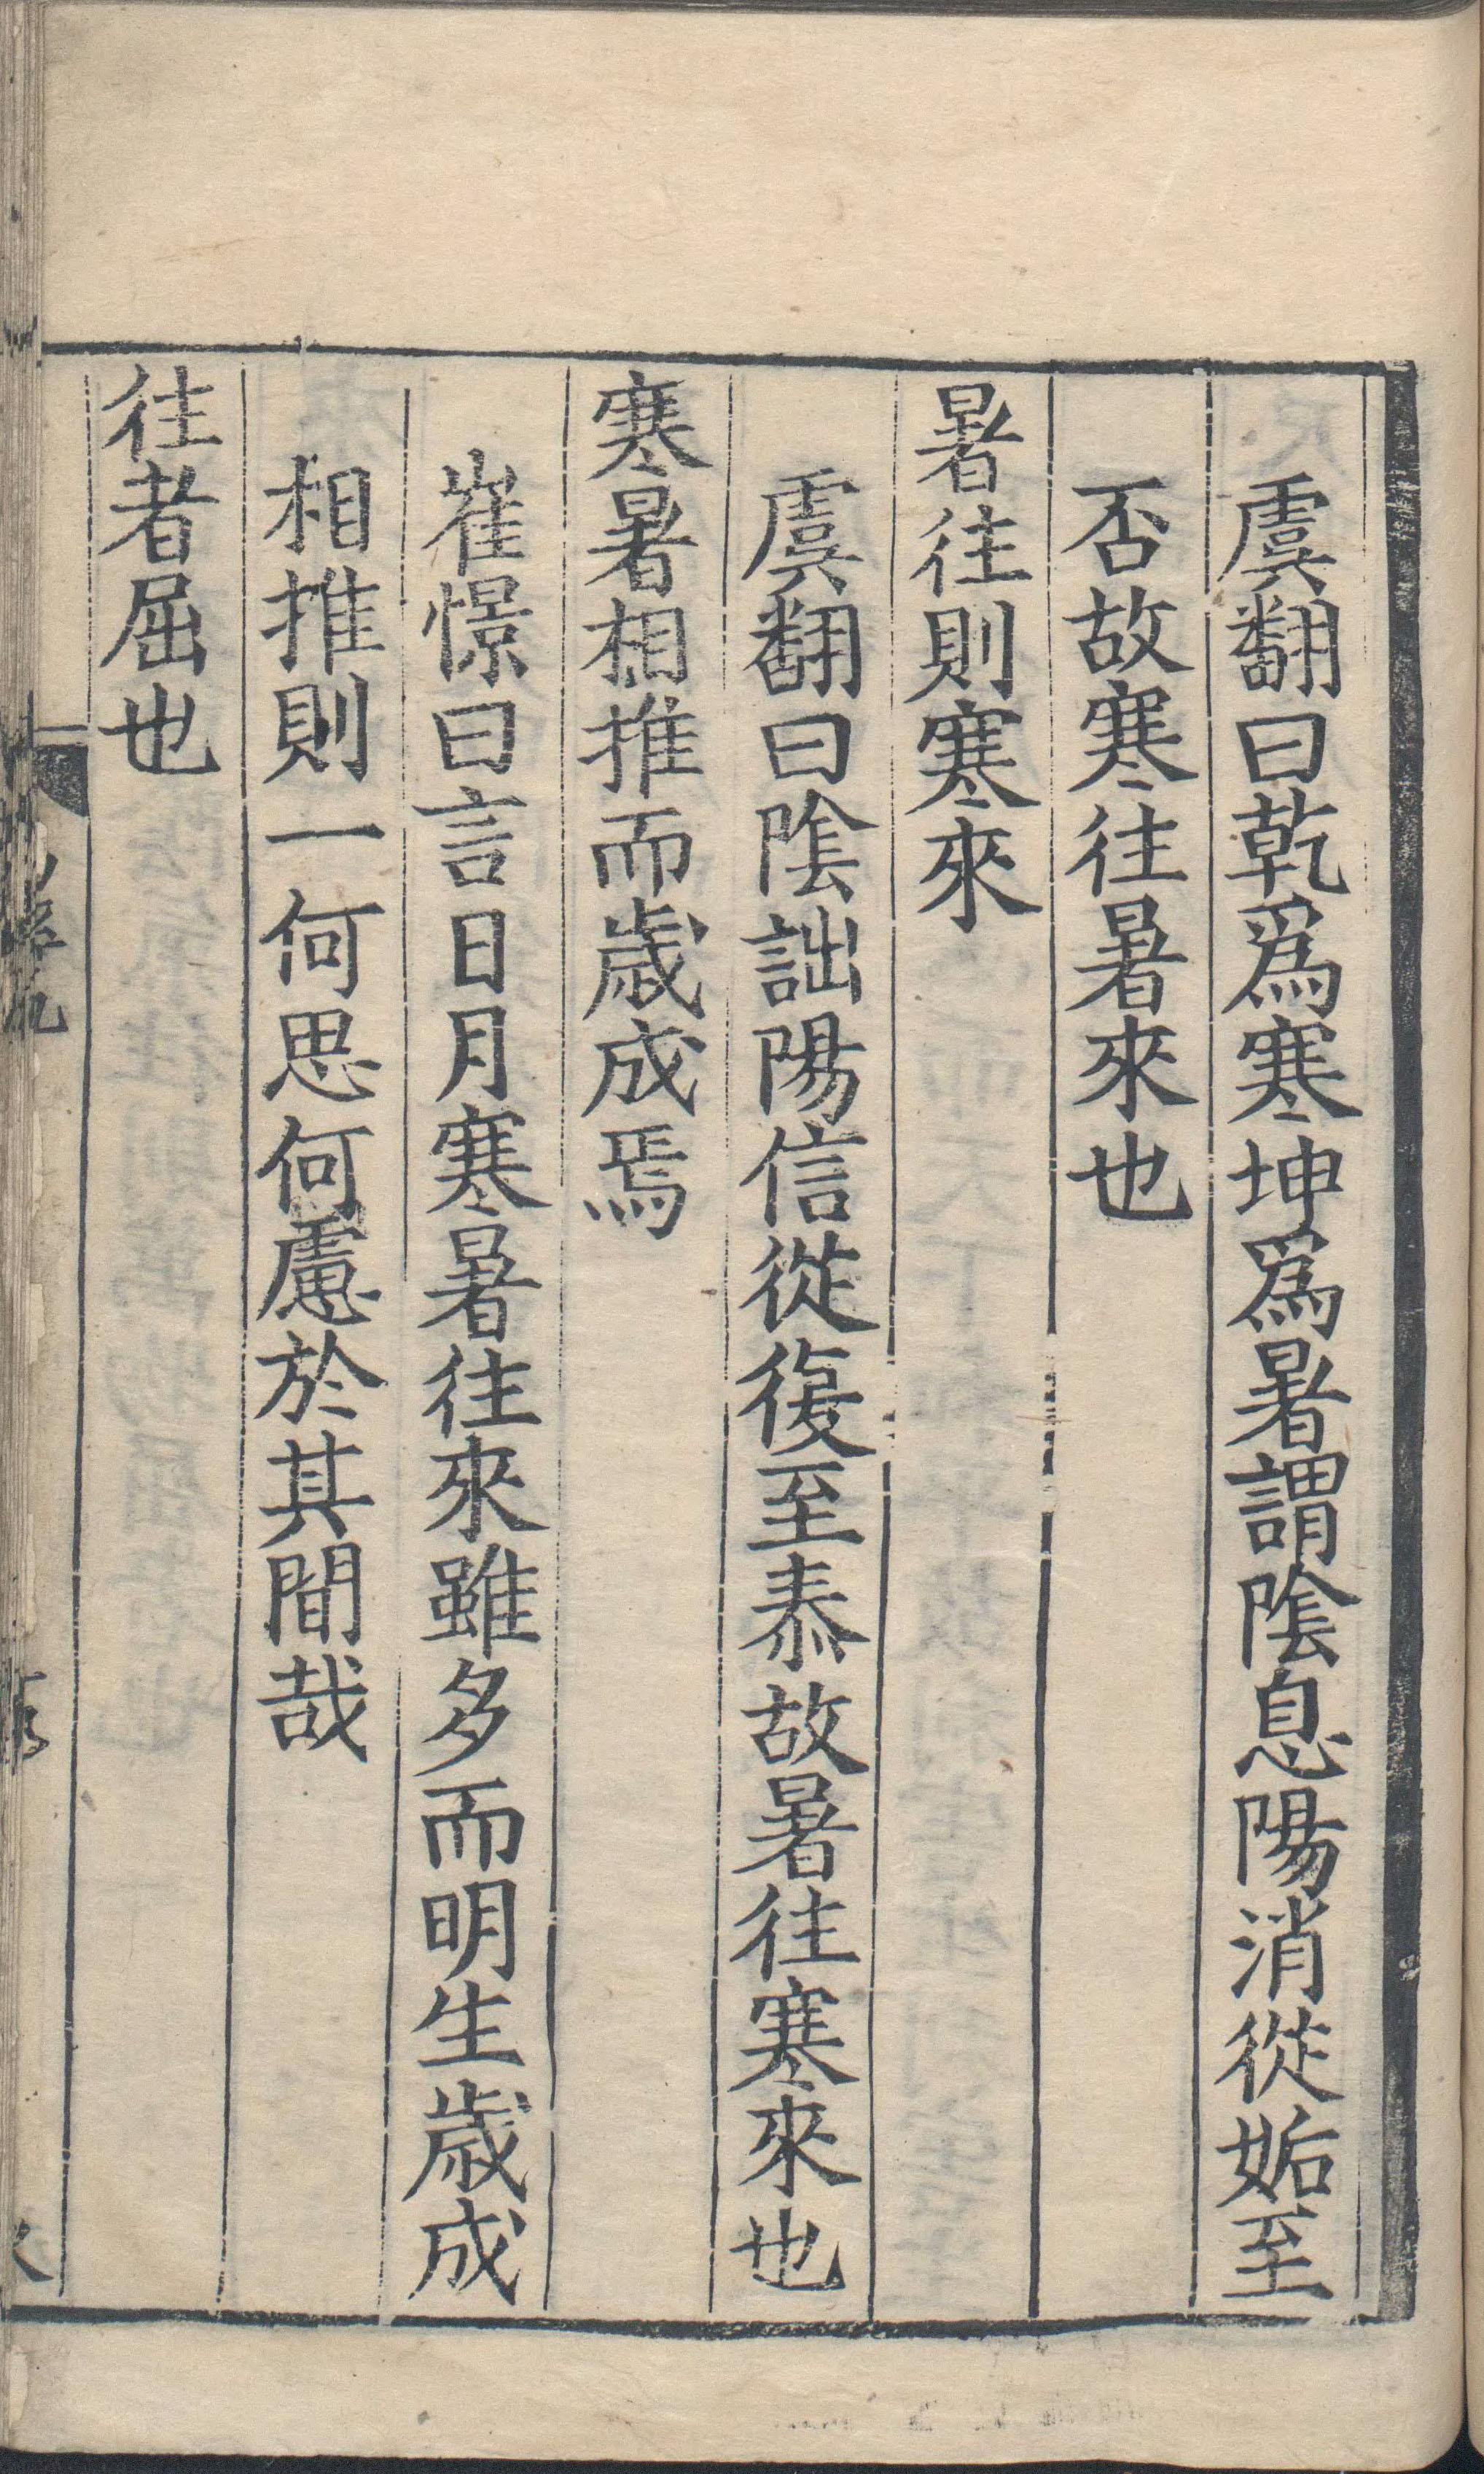 虞翻曰乾爲寒坤爲暑謂陰息陽消從姤至
否故寒往暑來也
暑往則寒來
虞翻曰陰詘陽信從復至泰故暑往寒來也
寒暑相推而歲成焉
崔憬曰言日月寒暑往來雖多而明生歲成
相推則一何思何慮於其間哉
往者屈也